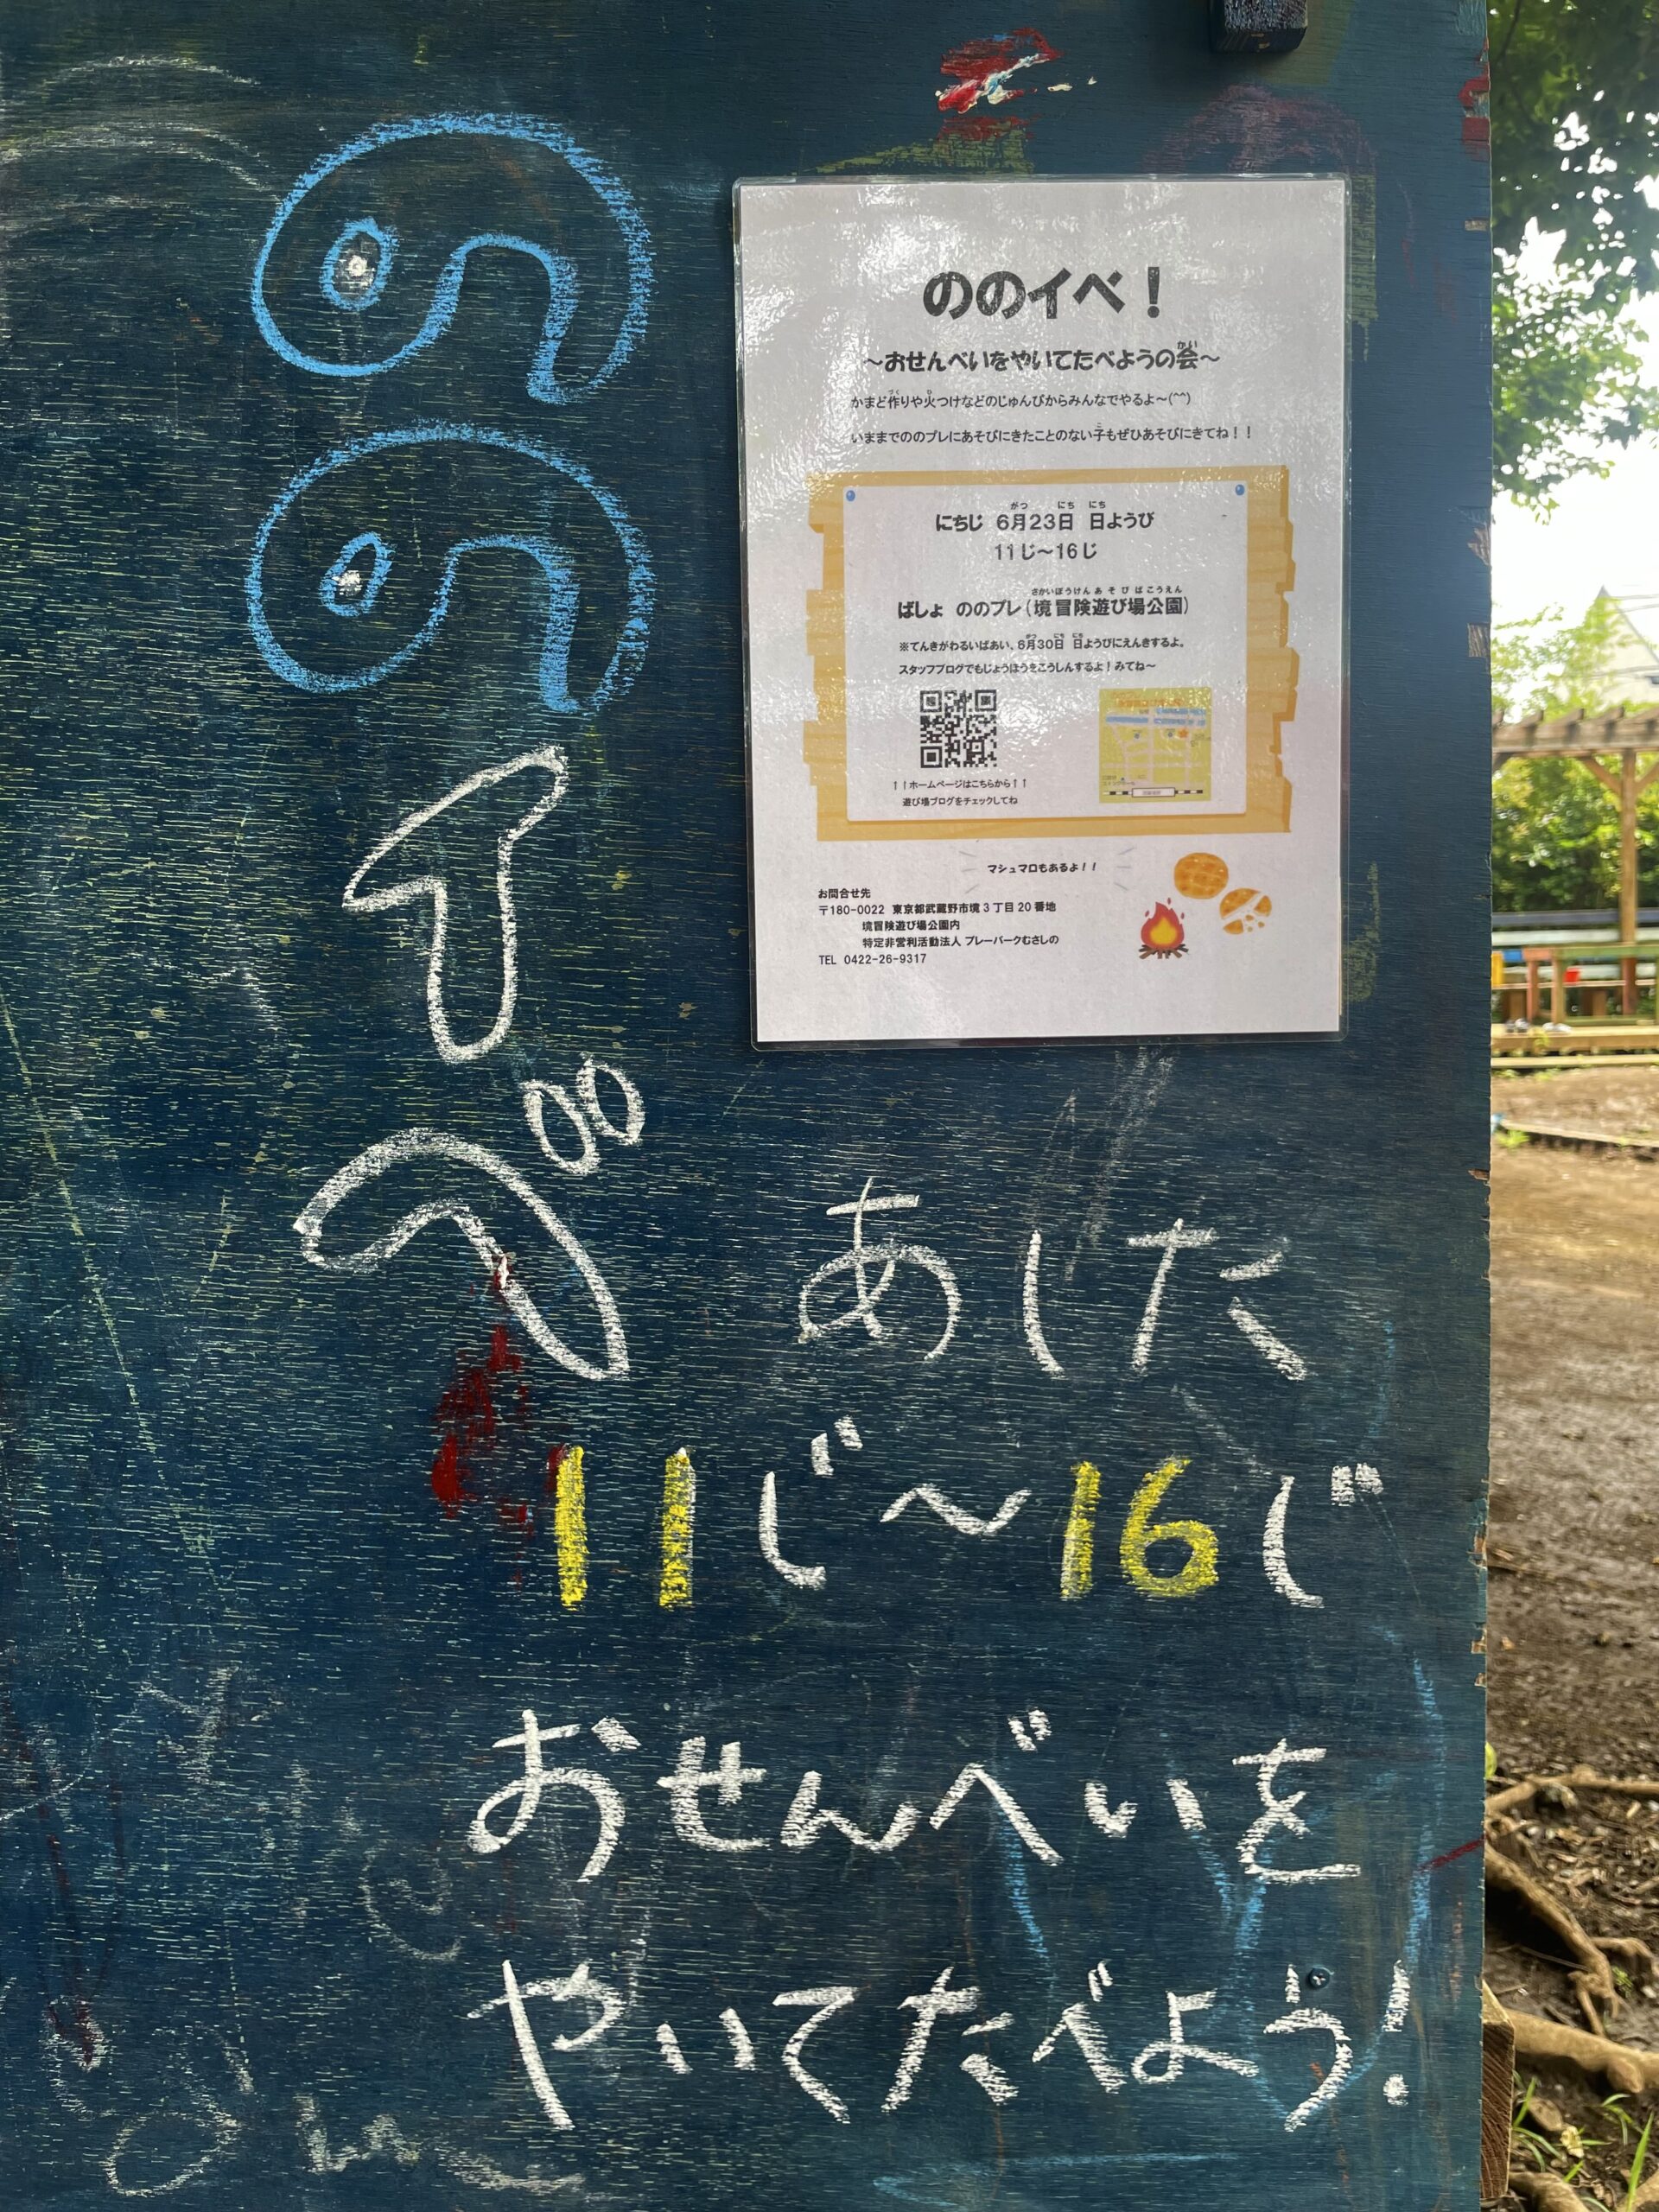 ののイベ
ののイベ！
～おせんべいをやいてたべようの会～
かまど作りや火つけなどのじゅんびからみんなでやるよ～(^^)
いままでののプレにあそびにきたことのない子もぜひあそびにきてね！！
にちじ 6月23日 日ようび
11じ～16じ
ばしょ ののプレ(境冒険遊び場公園)
※てんきがわるいばあい、6月30日 日ようびにえんきするよ。
スタッフブログでもじょうほうをこうしんするよ！みてね～
↑↑ホームページはこちらから↑↑
遊び場ブログをチェックしてね
マシュマロもあるよ！！
お問合せ先
〒180-0022 東京都武蔵野市境3丁目20番地
境冒険遊び場公園内
特定非営利活動法人 プレーパークむさしの
TEL 0422-26-9317
あした
11じ～16じ
おせんべいを
やいてたべよう!